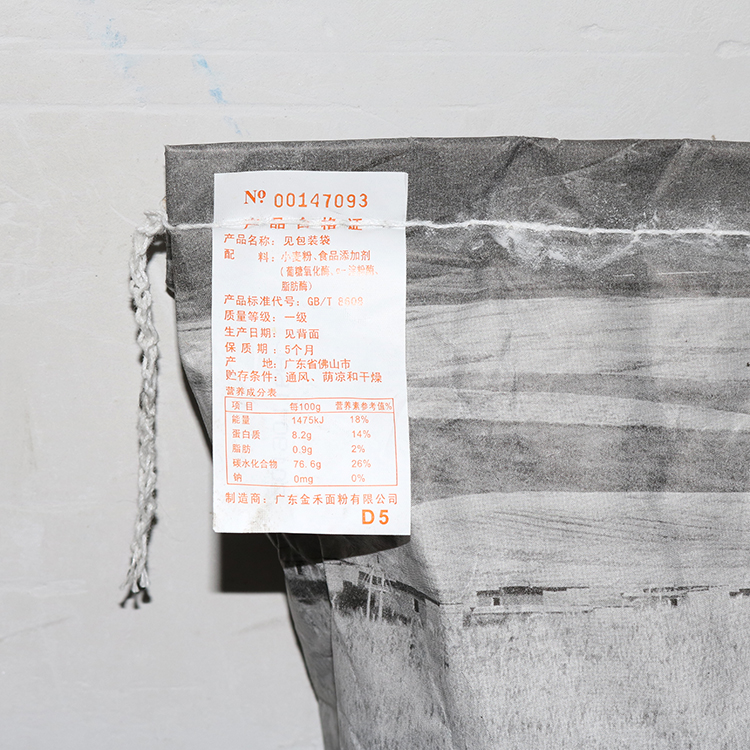 № 00147093
产品合格证
产品名称：见包装袋
配　料：小麦粉、食品添加剂
（葡糖氧化酶、α-淀粉酶、
脂肪酶）
产品标准代号：GB/T 8608
质量等级：一级
生产日期：见背面
保质期：5个月
产　地：广东省佛山市
贮存条件：通风、荫凉和干燥
营养成分表
项目 每100g 营养素参考值%
能量 1475kJ 18%
蛋白质 8.2g 14%
脂肪 0.9g 2%
碳水化合物 76.6g 26%
钠 0mg 0%
制造商：广东金禾面粉有限公司
D5